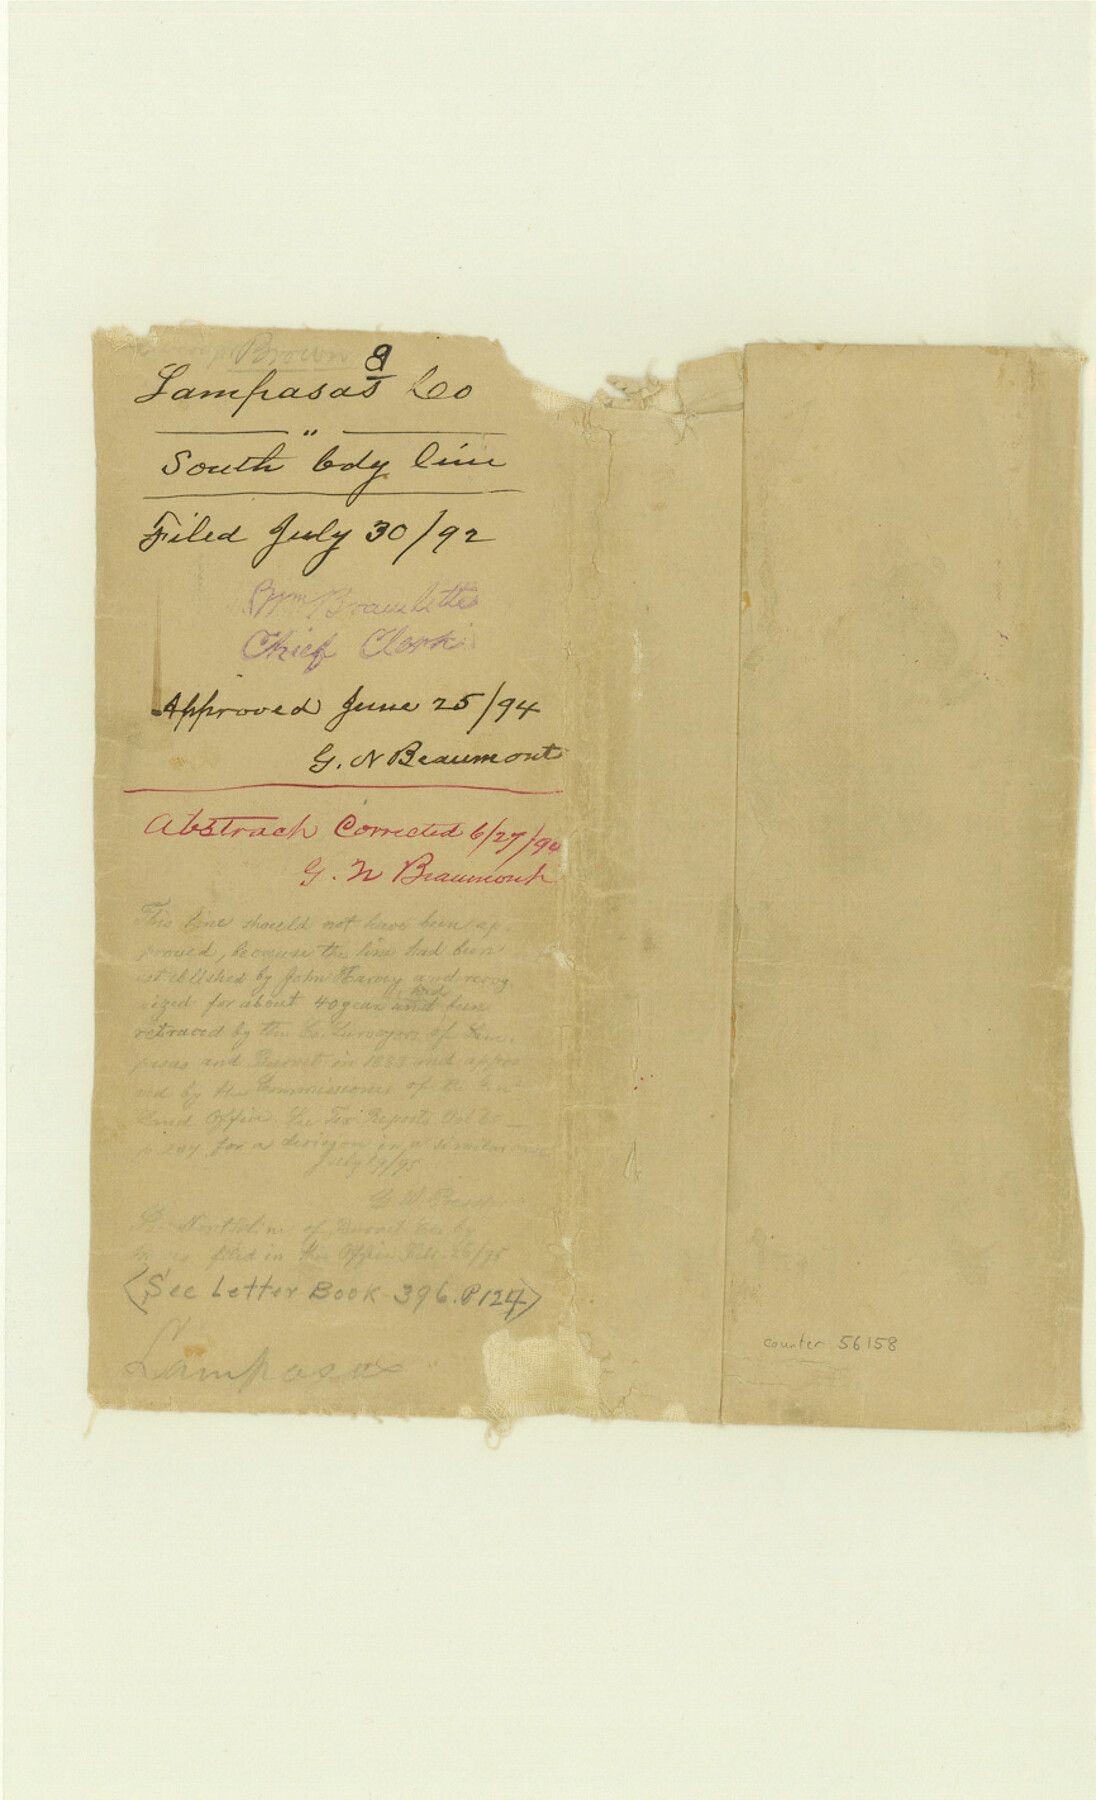 Brown
8
Lampasas Co
"
South bdy line
Filed July 30/92
Wm Bramlette
Chief Clerk
Approved June 25/94
G. N Beaumont
Abstract Corrected 6/27/94
G. N Beaumont
This line should not have been ap-
proved, because the line had been
established by John Harvey and recog
nized for about 40 year and had been
retraced by the Co. Surveyors of Lam-
pasas and Burnet in 1883 and appro
ved by the Commissioner of the Gen
Land Office. See Tex Reports Vol
for a decision in a similar case
July 19/95
North line of Burnet Co. by
filed in this Office Feb. 26/95
<See Letter Book 396. P 124>
Lampasas
counter 56158